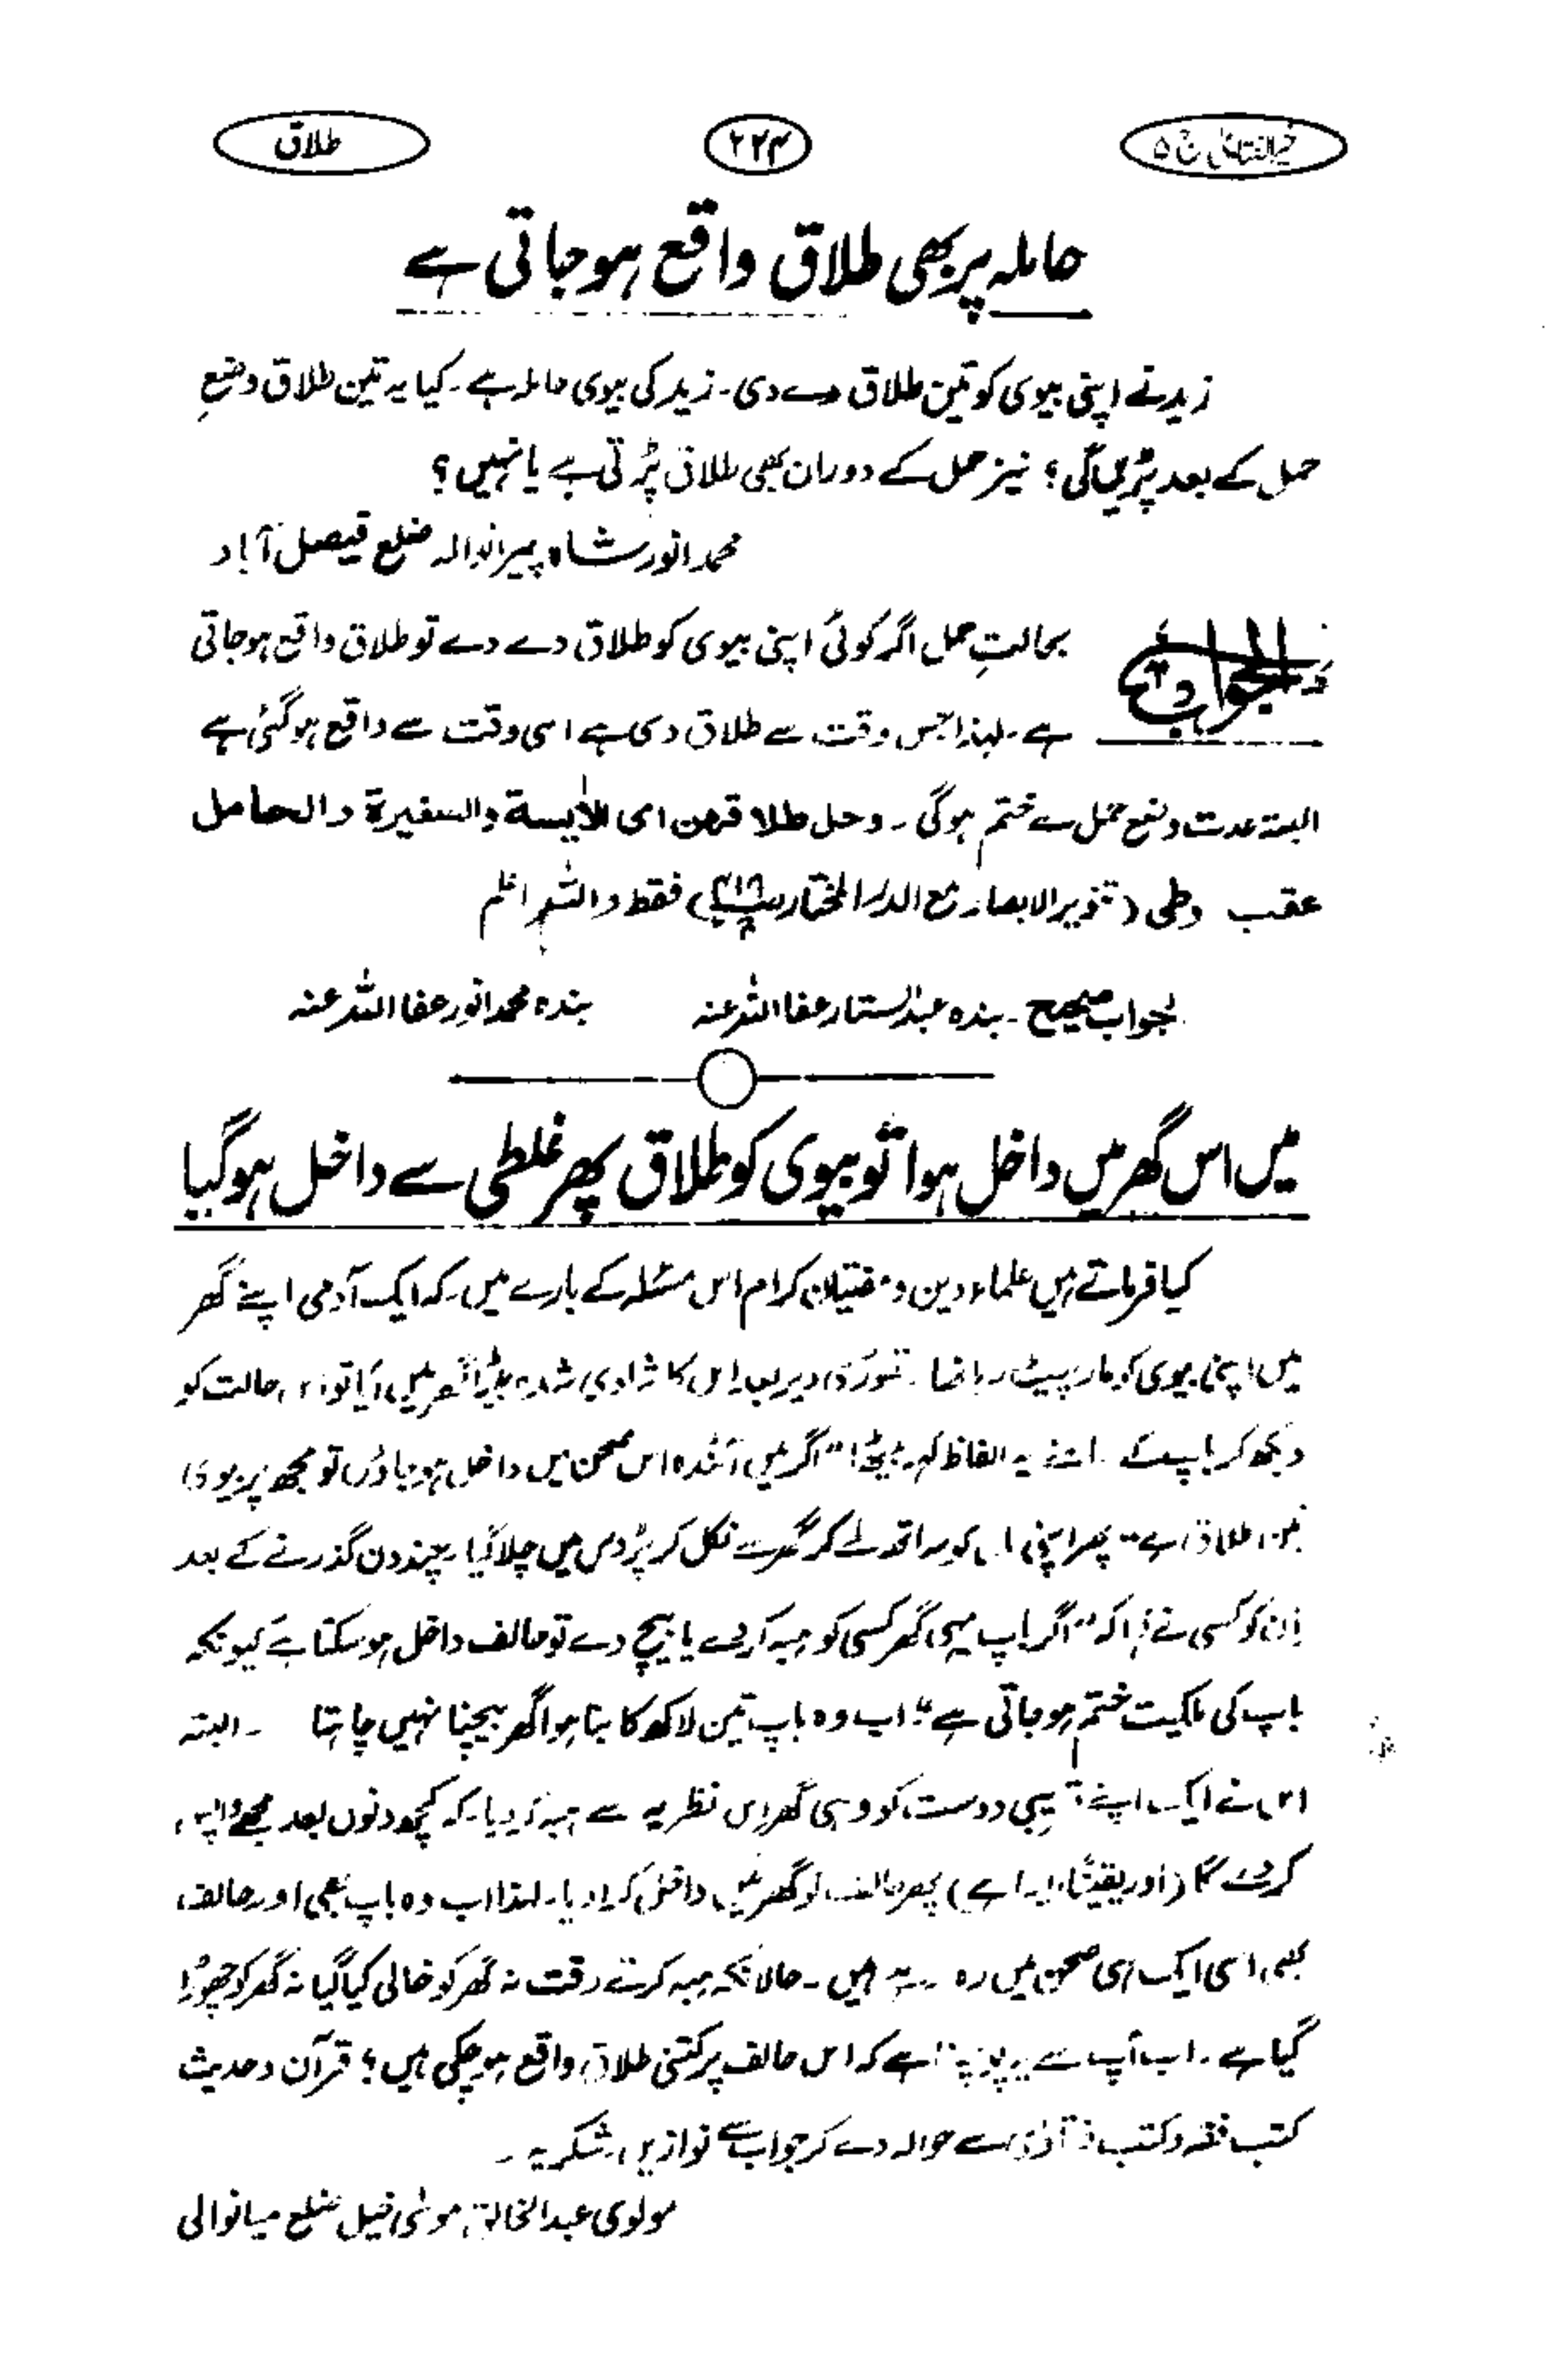 خیر الفتاویٰ ج ۵
۲۲۴
طلاق
حاملہ پر بھی طلاق واقع ہو جاتی ہے
زید نے اپنی بیوی کو تین طلاق دے دی۔ زید کی بیوی حاملہ ہے۔ کیا یہ تین طلاق وضعِ
حمل کے بعد پڑیں گی؟ نیز حمل کے دوران بھی طلاق پڑتی ہے یا نہیں؟
محمد انور شاہ پیرانوالہ ضلع فیصل آباد
الجواب بحالتِ حمل اگر کوئی اپنی بیوی کو طلاق دے دے تو طلاق واقع ہو جاتی
ہے۔ لہٰذا جس وقت سے طلاق دی ہے اسی وقت سے واقع ہو گئی ہے
البتہ عدت وضع حمل سے ختم ہو گی۔ وحل طلاقهن ای الاٰیسة والصغیرة والحامل
عقب وطی (تنویر الابصار مع الدر المختار) فقط واللہ اعلم
الجواب صحیح۔ بندہ عبدالستار عفا اللہ عنہ بندہ محمد انور عفا اللہ عنہ
میں اس گھر میں داخل ہوا تو بیوی کو طلاق پھر غلطی سے داخل ہو گیا
کیا فرماتے ہیں علماء دین و مفتیان کرام اس مسئلہ کے بارے میں۔ کہ ایک آدمی اپنے گھر
میں اپنی بیوی کو مار پیٹ رہا تھا۔ تھوڑی دیر بعد اس کا شادی شدہ بیٹا گھر میں آیا تو اس حالت کو
دیکھ کر باپ کے سامنے یہ الفاظ کہہ بیٹھا "اگر میں آئندہ اس صحن میں داخل ہو جاؤں تو مجھ پر بیوی
تین طلاق ہے" پھر اپنی ماں کو ساتھ لے کر گھر سے نکل کر پڑوس میں چلا گیا۔ چند دن گذرنے کے بعد
ان کو کسی نے کہا کہ "اگر باپ یہی گھر کسی کو ہبہ کر دے یا بیچ دے تو حالف داخل ہو سکتا ہے کیونکہ
باپ کی ملکیت ختم ہو جاتی ہے" اب وہ باپ تین لاکھ کا بنا ہوا گھر بیچنا نہیں چاہتا ۔ البتہ
اس نے ایک اپنے قریبی دوست کو وہی گھر اس نظریہ سے ہبہ کر دیا۔ کہ کچھ دنوں بعد مجھے واپس
کر دے گا (اور یقیناً ایسا ہے) پھر حالف کو گھر میں داخل کرا دیا۔ لہٰذا اب وہ باپ بھی اور حالف
بھی اسی ایک ہی صحن میں رہ رہے ہیں۔ حالانکہ ہبہ کرتے وقت نہ گھر کو خالی کیا گیا نہ گھر کو چھوڑا
گیا ہے۔ اب آپ سے یہ پوچھنا ہے کہ اس حالف پر کتنی طلاق واقع ہو چکی ہیں؟ قرآن و حدیث
کتب فقہ و کتب فتاویٰ سے حوالہ دے کر جواب سے نوازیں، شکریہ۔
مولوی عبدالخالق موسٰی خیل ضلع میانوالی